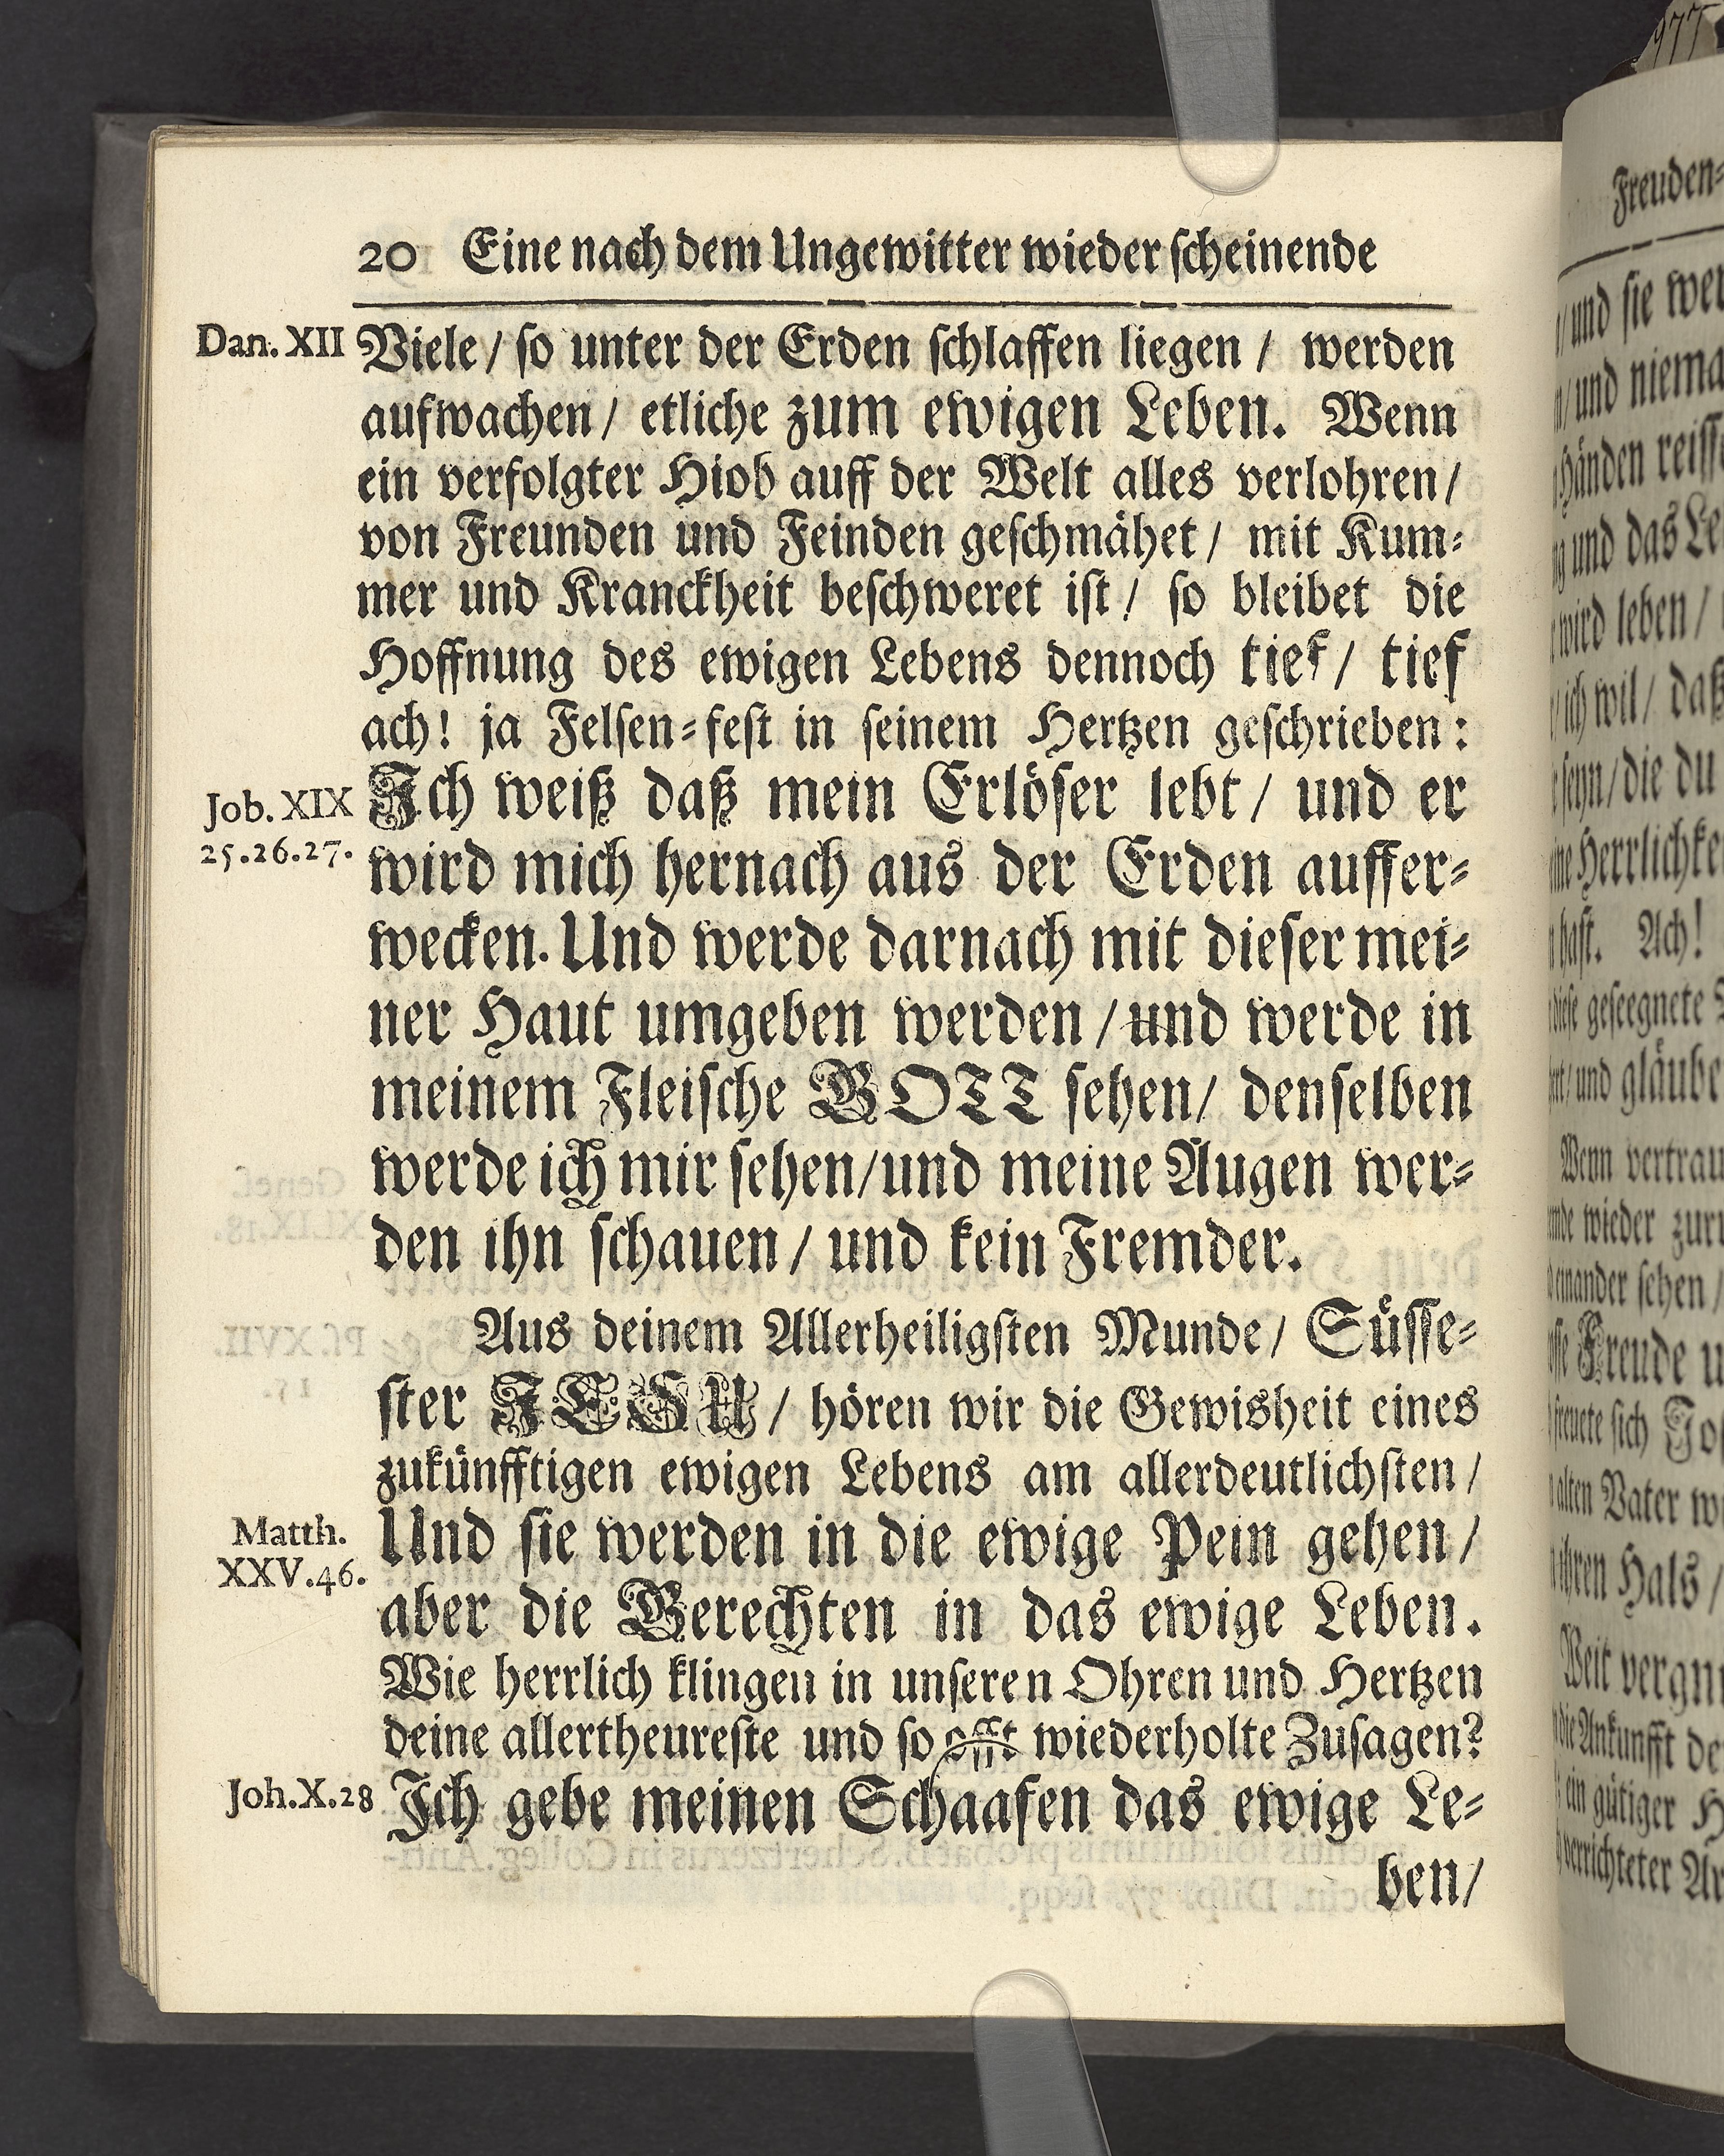 20 Eine nach dem Ungewitter wieder scheinende
Dan. XII
Viele / so unter der Erden schlaffen liegen / werden
aufwachen / etliche zum ewigen Leben. Wenn
ein verfolgter Hiob auff der Welt alles verlohren /
von Freunden und Feinden geschmähet / mit Kum-
mer und Kranckheit beschweret ist / so bleibet die
Hoffnung des ewigen Lebens dennoch tief / tief
ach! ja Felsen-fest in seinem Hertzen geschrieben:
Job. XIX
25.26.27.
Ich weiß daß mein Erlöser lebt / und er
wird mich hernach aus der Erden auffer-
wecken. Und werde darnach mit dieser mei-
ner Haut umgeben werden / und werde in
meinem Fleische GOTT sehen / denselben
werde ich mir sehen / und meine Augen wer-
den ihn schauen / und kein Fremder.
Aus deinem Allerheiligsten Munde / Süsse-
ster JESU / hören wir die Gewisheit eines
zukünfftigen ewigen Lebens am allerdeutlichsten /
Matth.
XXV.46.
Und sie werden in die ewige Pein gehen /
aber die Gerechten in das ewige Leben.
Wie herrlich klingen in unseren Ohren und Hertzen
deine allertheureste und so offt wiederholte Zusagen?
Joh.X.28
Ich gebe meinen Schaafen das ewige Le-
ben /
977
Freuden-
und sie
und
Händen
und das
wird leben /
ich wil / daß
die du
Herrlichke
hast. Ach!
diese geseegnete
und gläube
Wenn vertrau
wieder
einander sehen /
Freude
freuete sich
alten Vater
ihren Hals /
Weit
die Ankunfft
ein gütiger
verrichteter